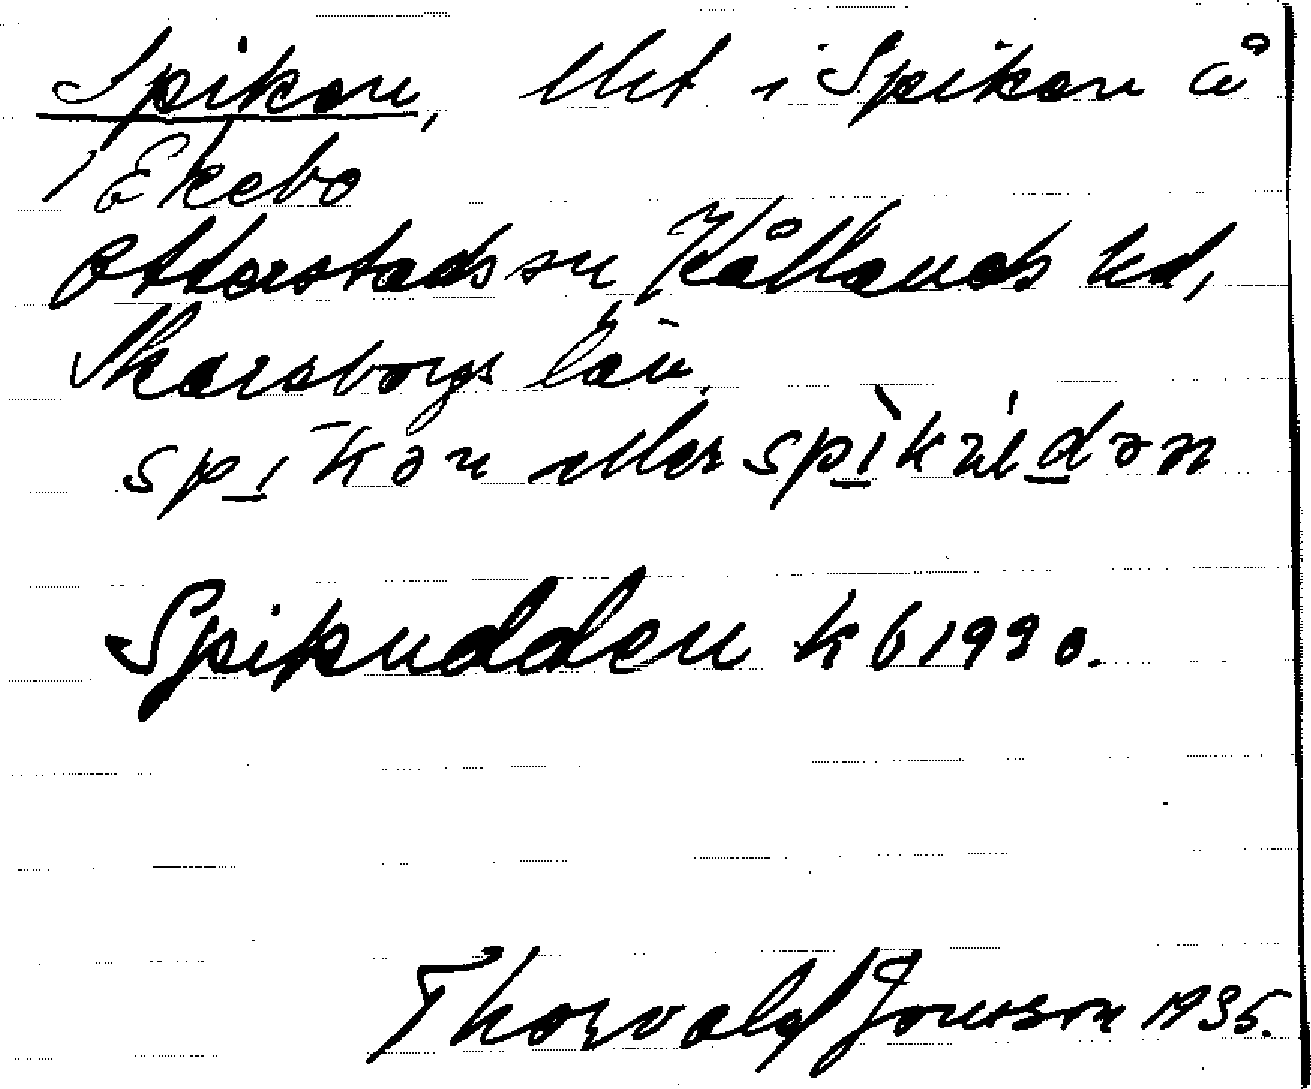 Spiken, Udd i Spiken å
Ekebo
Otterstads sn Kållands hd,
Skaraborgs län.
spikən eller spikudən
Spikudden kb 1990.
Thorvald Jonsson 1935.